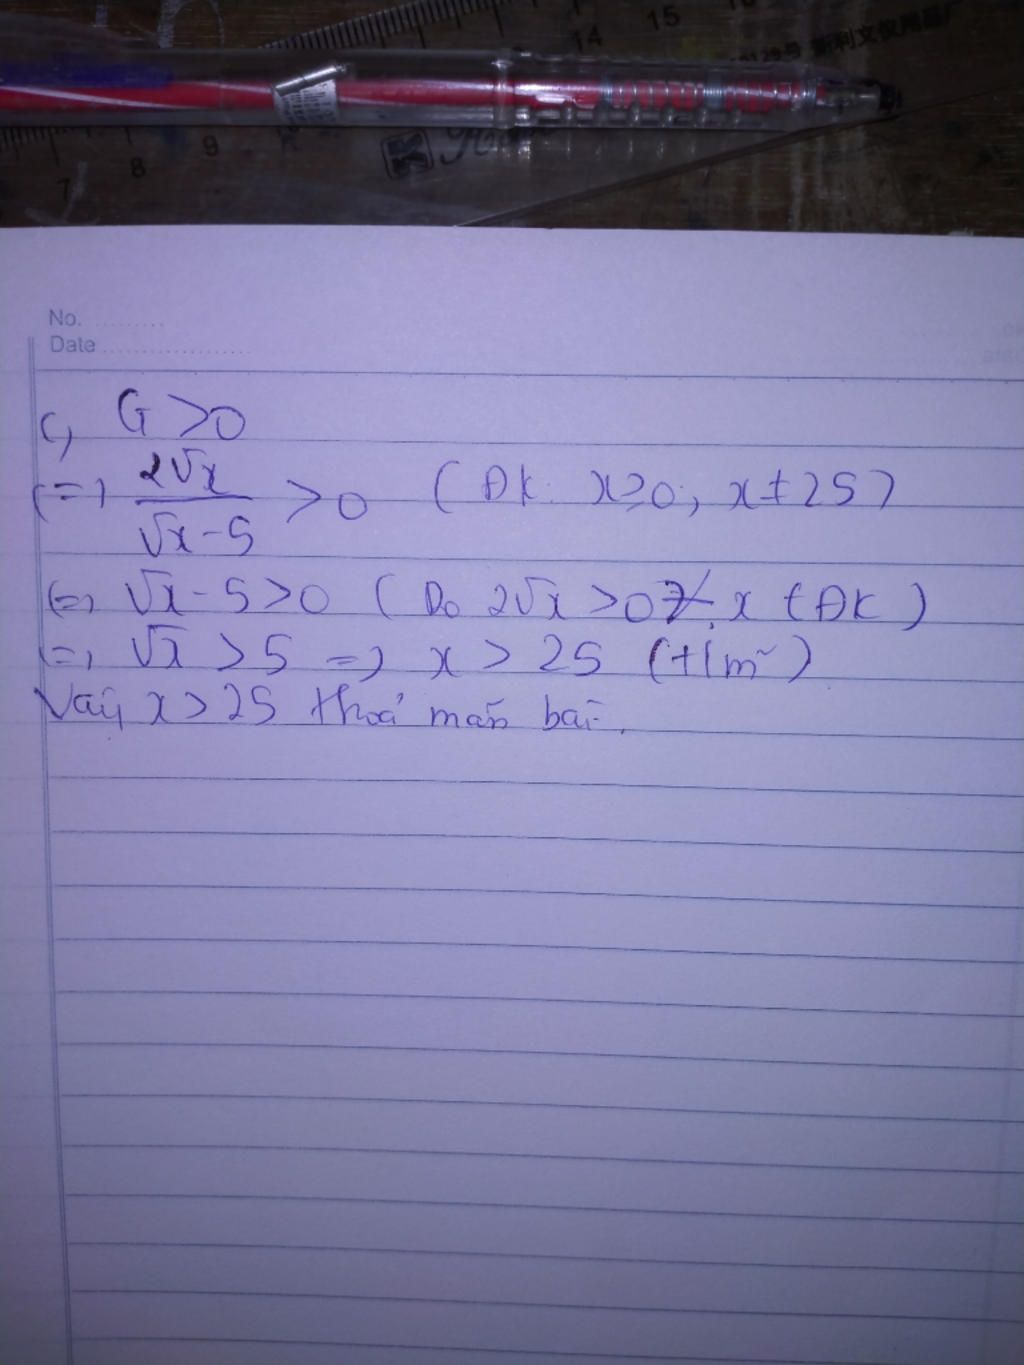 15
14
新利文仪用品厂
9
8
7
K
No. ..........
Date ....................
c, G > 0
(=) 2√x / √x - 5 > 0 (ĐK: x ≥ 0; x ≠ 25)
(=) √x - 5 > 0 (Do 2√x > 0 ∀ x t ĐK)
(=) √x > 5 => x > 25 (t/m~)
Vậy x > 25 thoả mãn bài.